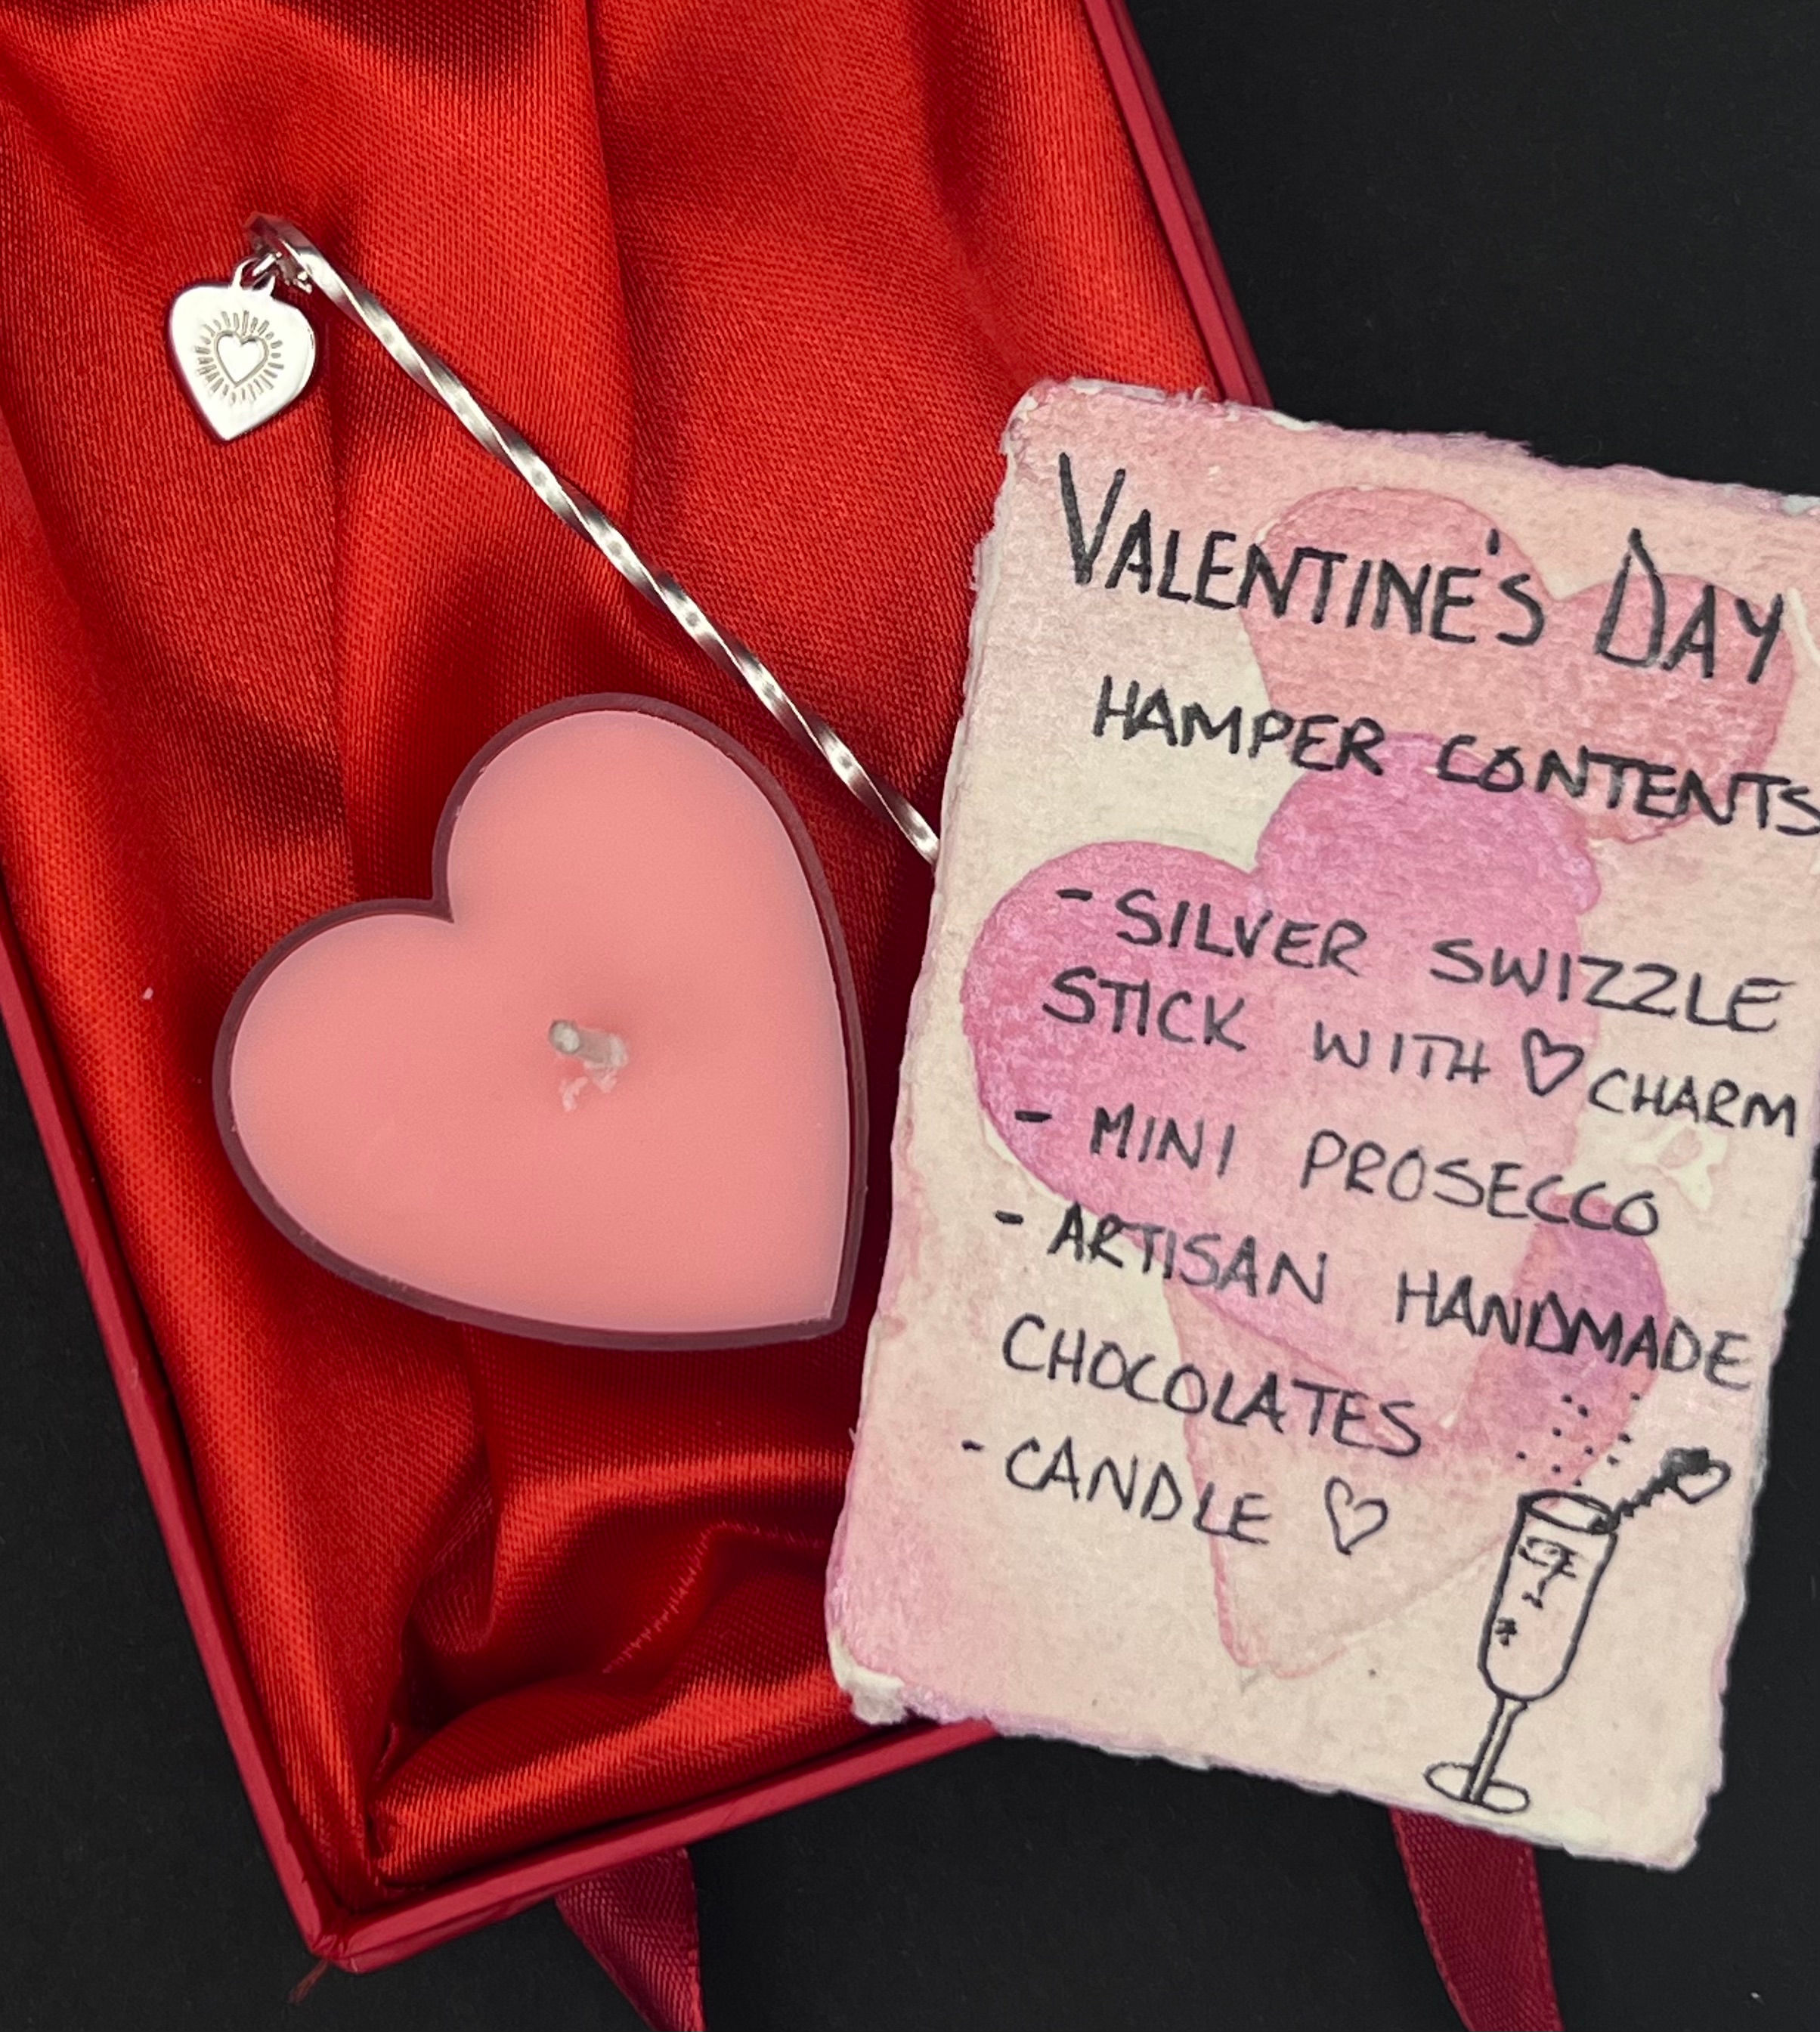 VALENTINE'S DAY
HAMPER CONTENTS
- SILVER SWIZZLE
STICK WITH ♡ CHARM
- MINI PROSECCO
- ARTISAN HANDMADE
CHOCOLATES
- CANDLE ♡